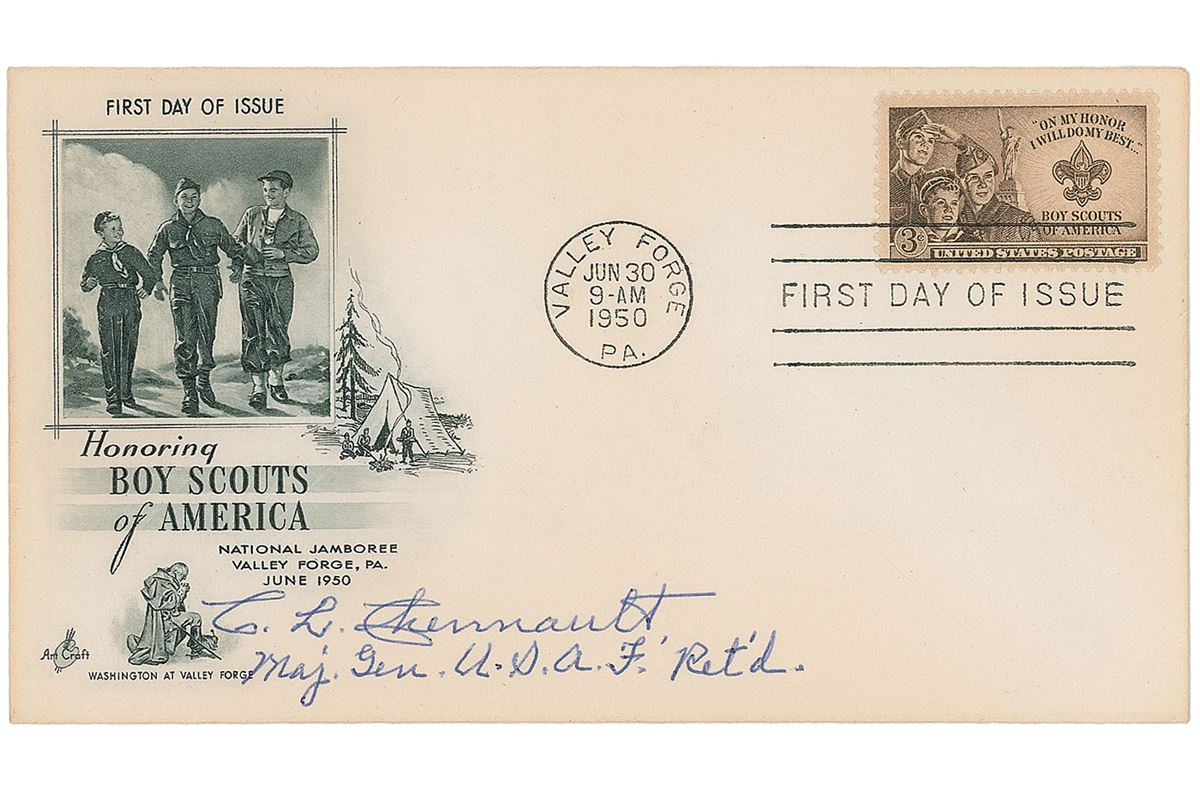 FIRST DAY OF ISSUE
"ON MY HONOR
I WILL DO MY BEST..."
BOY SCOUTS
OF AMERICA
3¢
UNITED STATES POSTAGE
VALLEY FORGE
JUN 30
9-AM
1950
PA.
FIRST DAY OF ISSUE
Honoring
BOY SCOUTS
of AMERICA
NATIONAL JAMBOREE
VALLEY FORGE, PA.
JUNE 1950
C. L. Chennault
Maj. Gen. U.S.A.F. Ret'd.
Art Craft
WASHINGTON AT VALLEY FORGE